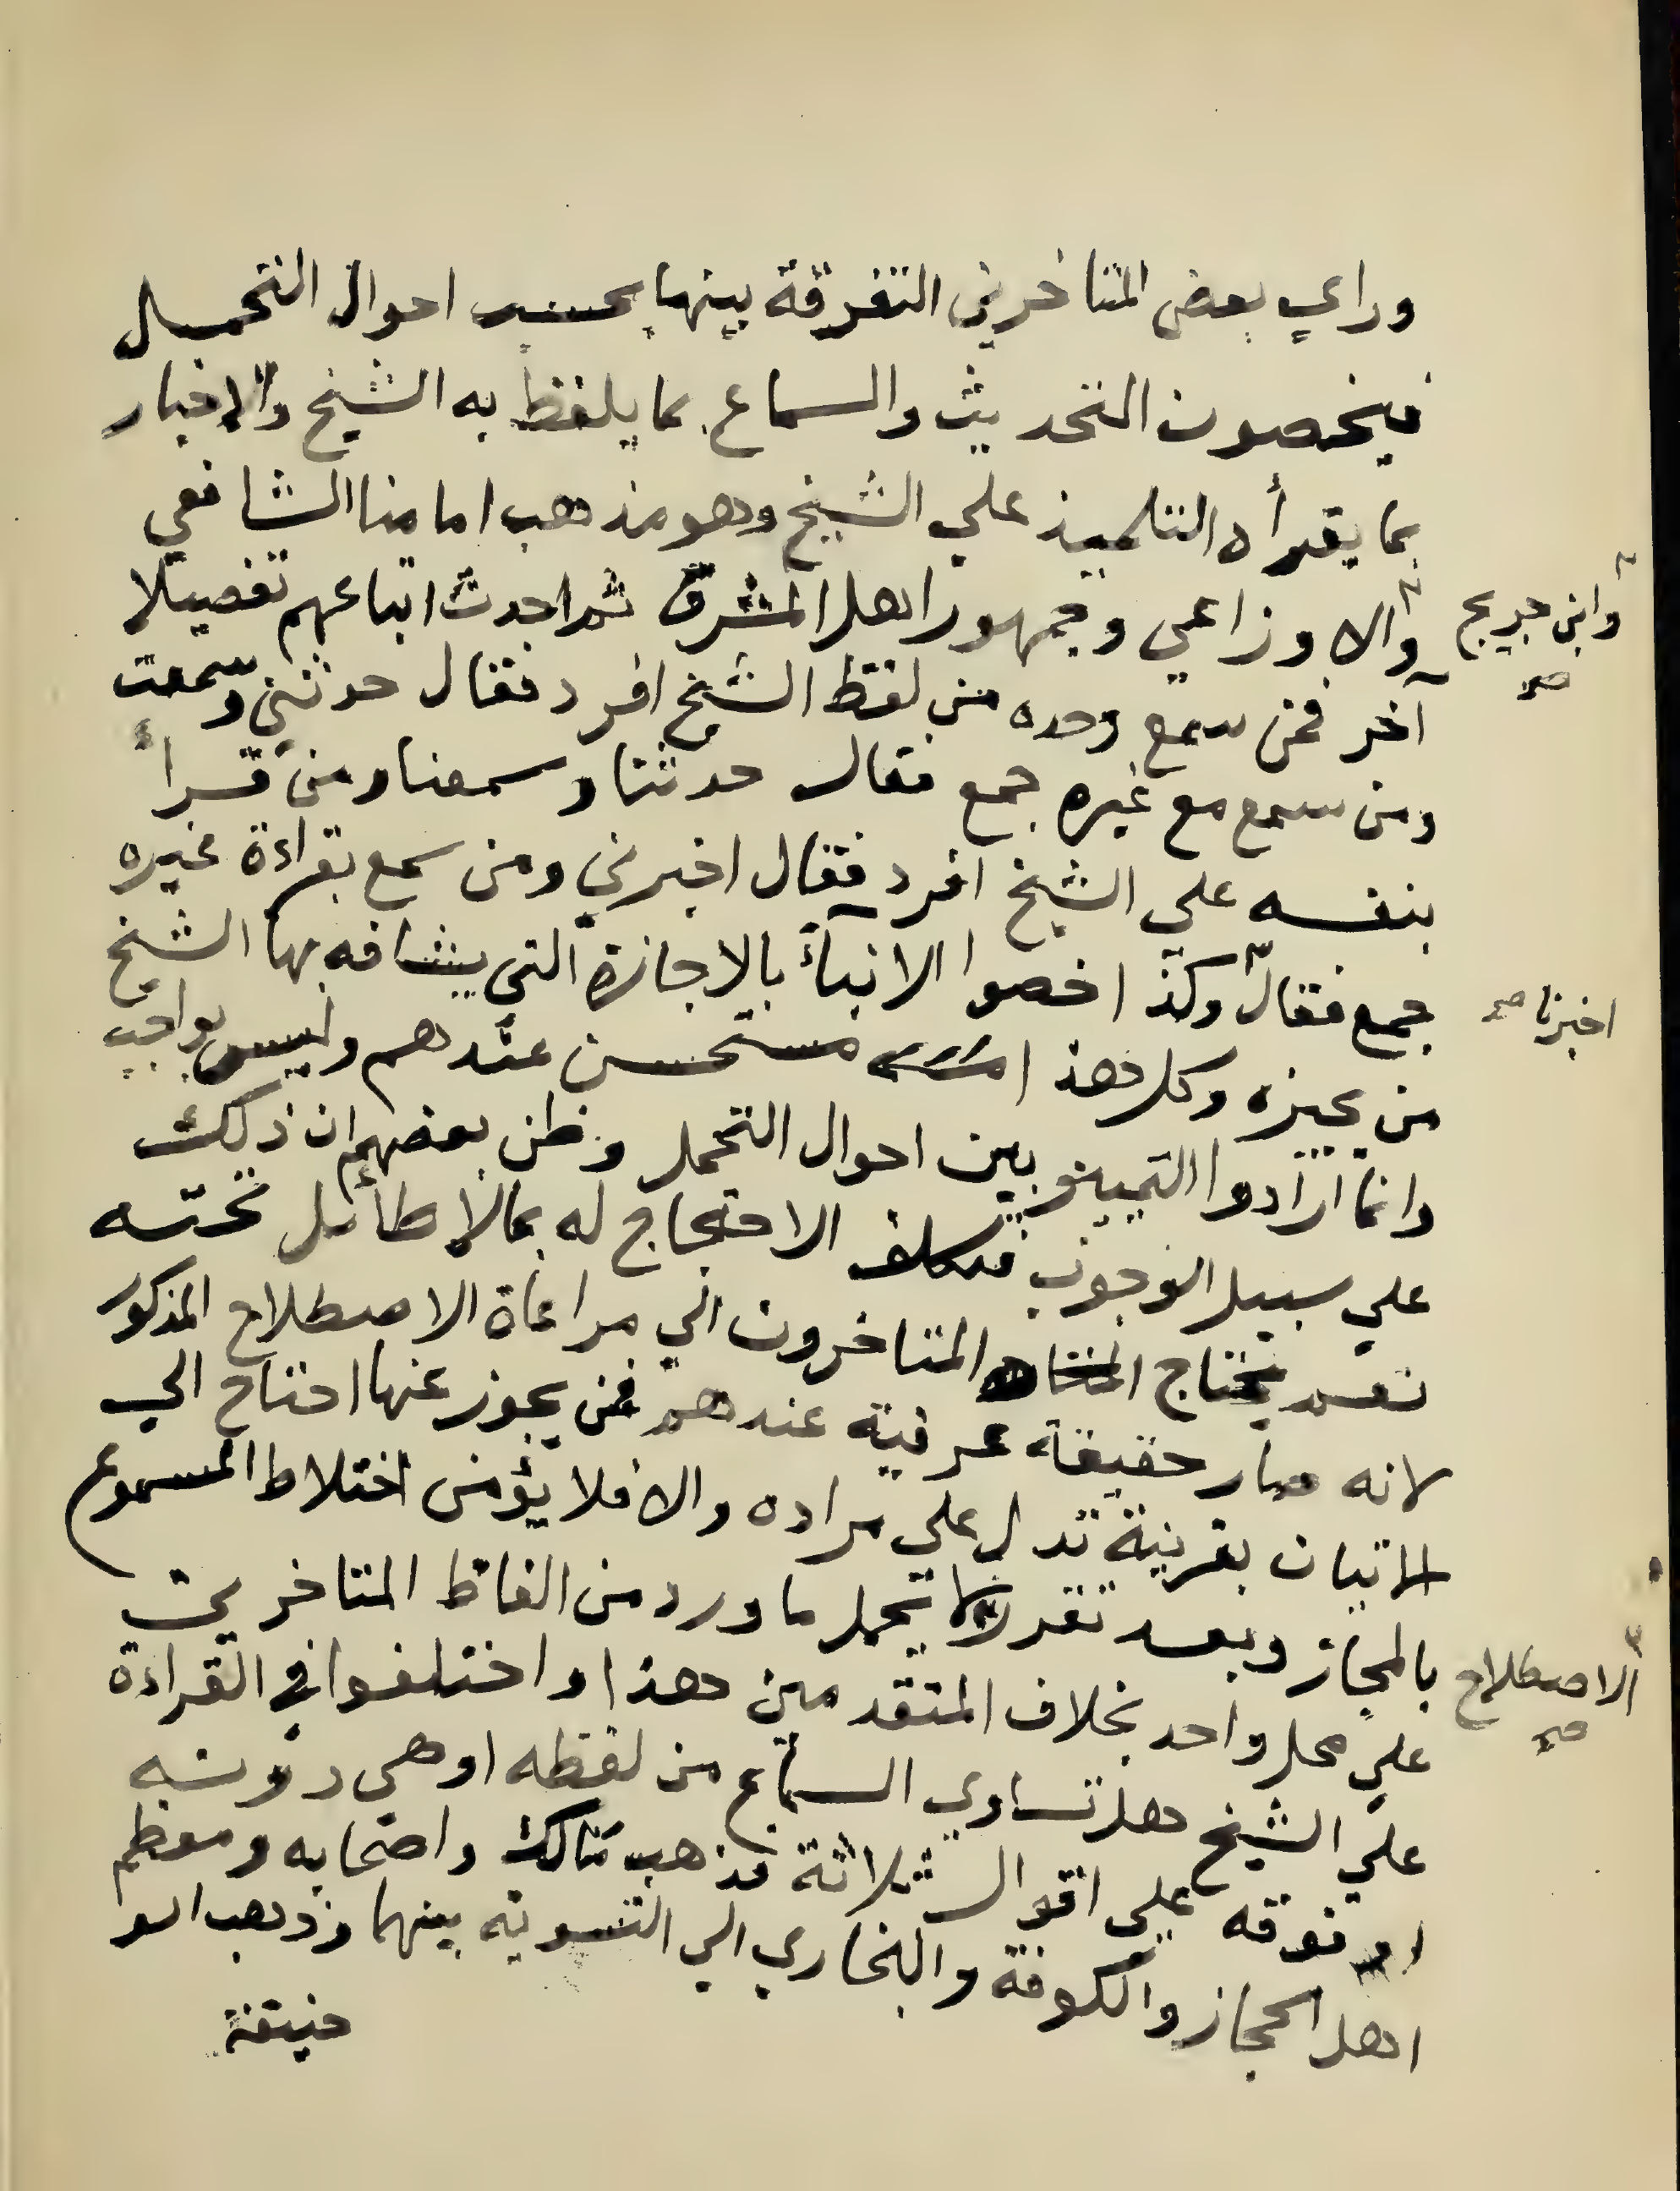 وراي بعض المتاخرين التفرقة بينهما بحسب احوال التحمل
فيخصون التحديث والسماع بما يلفظ به الشيخ والاخبار
بما يقرأه التلميذ علي الشيخ وهو مذهب امامنا الشافعي
وابن جريج صح
والاوزاعي وجمهور اهل المشرق ثم احدث اتباعهم تفصيلا
آخر فمن سمع وحده من لفظ الشيخ افرد فقال حدثني وسمعت
ومن سمع مع غيره جمع فقال حدثنا وسمعنا ومن قرأ
بنفسه علي الشيخ افرد فقال اخبرني ومن سمع بقراءة غيره
جمع فقال وكذا خصوا الانبآء بالاجازة التي يشافه بها الشيخ
اخبرنا صح
من يجيزه وكل هذا مستحسن عندهم وليس بواجب
وانما ارادوا التمييز بين احوال التحمل وظن بعضهم ان ذلك
علي سبيل الوجوب فتكلف الاحتجاج له بما لا طائل تحته
نعم يحتاج المتاخرون الي مراعاة الاصطلاح المذكور
لانه صار حقيقة عرفية عندهم فمن يجوز عنها احتاج الي
الاتيان بقرينة تدل علي مراده والا فلا يؤمن اختلاط المسموع
بالمجاز وبعد تقرر يحمل ما ورد من الفاظ المتاخرين
الاصطلاح صح
علي محل واحد بخلاف المتقدمين هذا واختلفوا في القراءة
علي الشيخ هل تساوي السماع من لفظه او هي دونه
او فوقه علي اقوال ثلاثة فذهب مالك واصحابه ومعظم
اهل الحجاز والكوفة والبخاري الي التسوية بينهما وذهب ابو
حنيفة